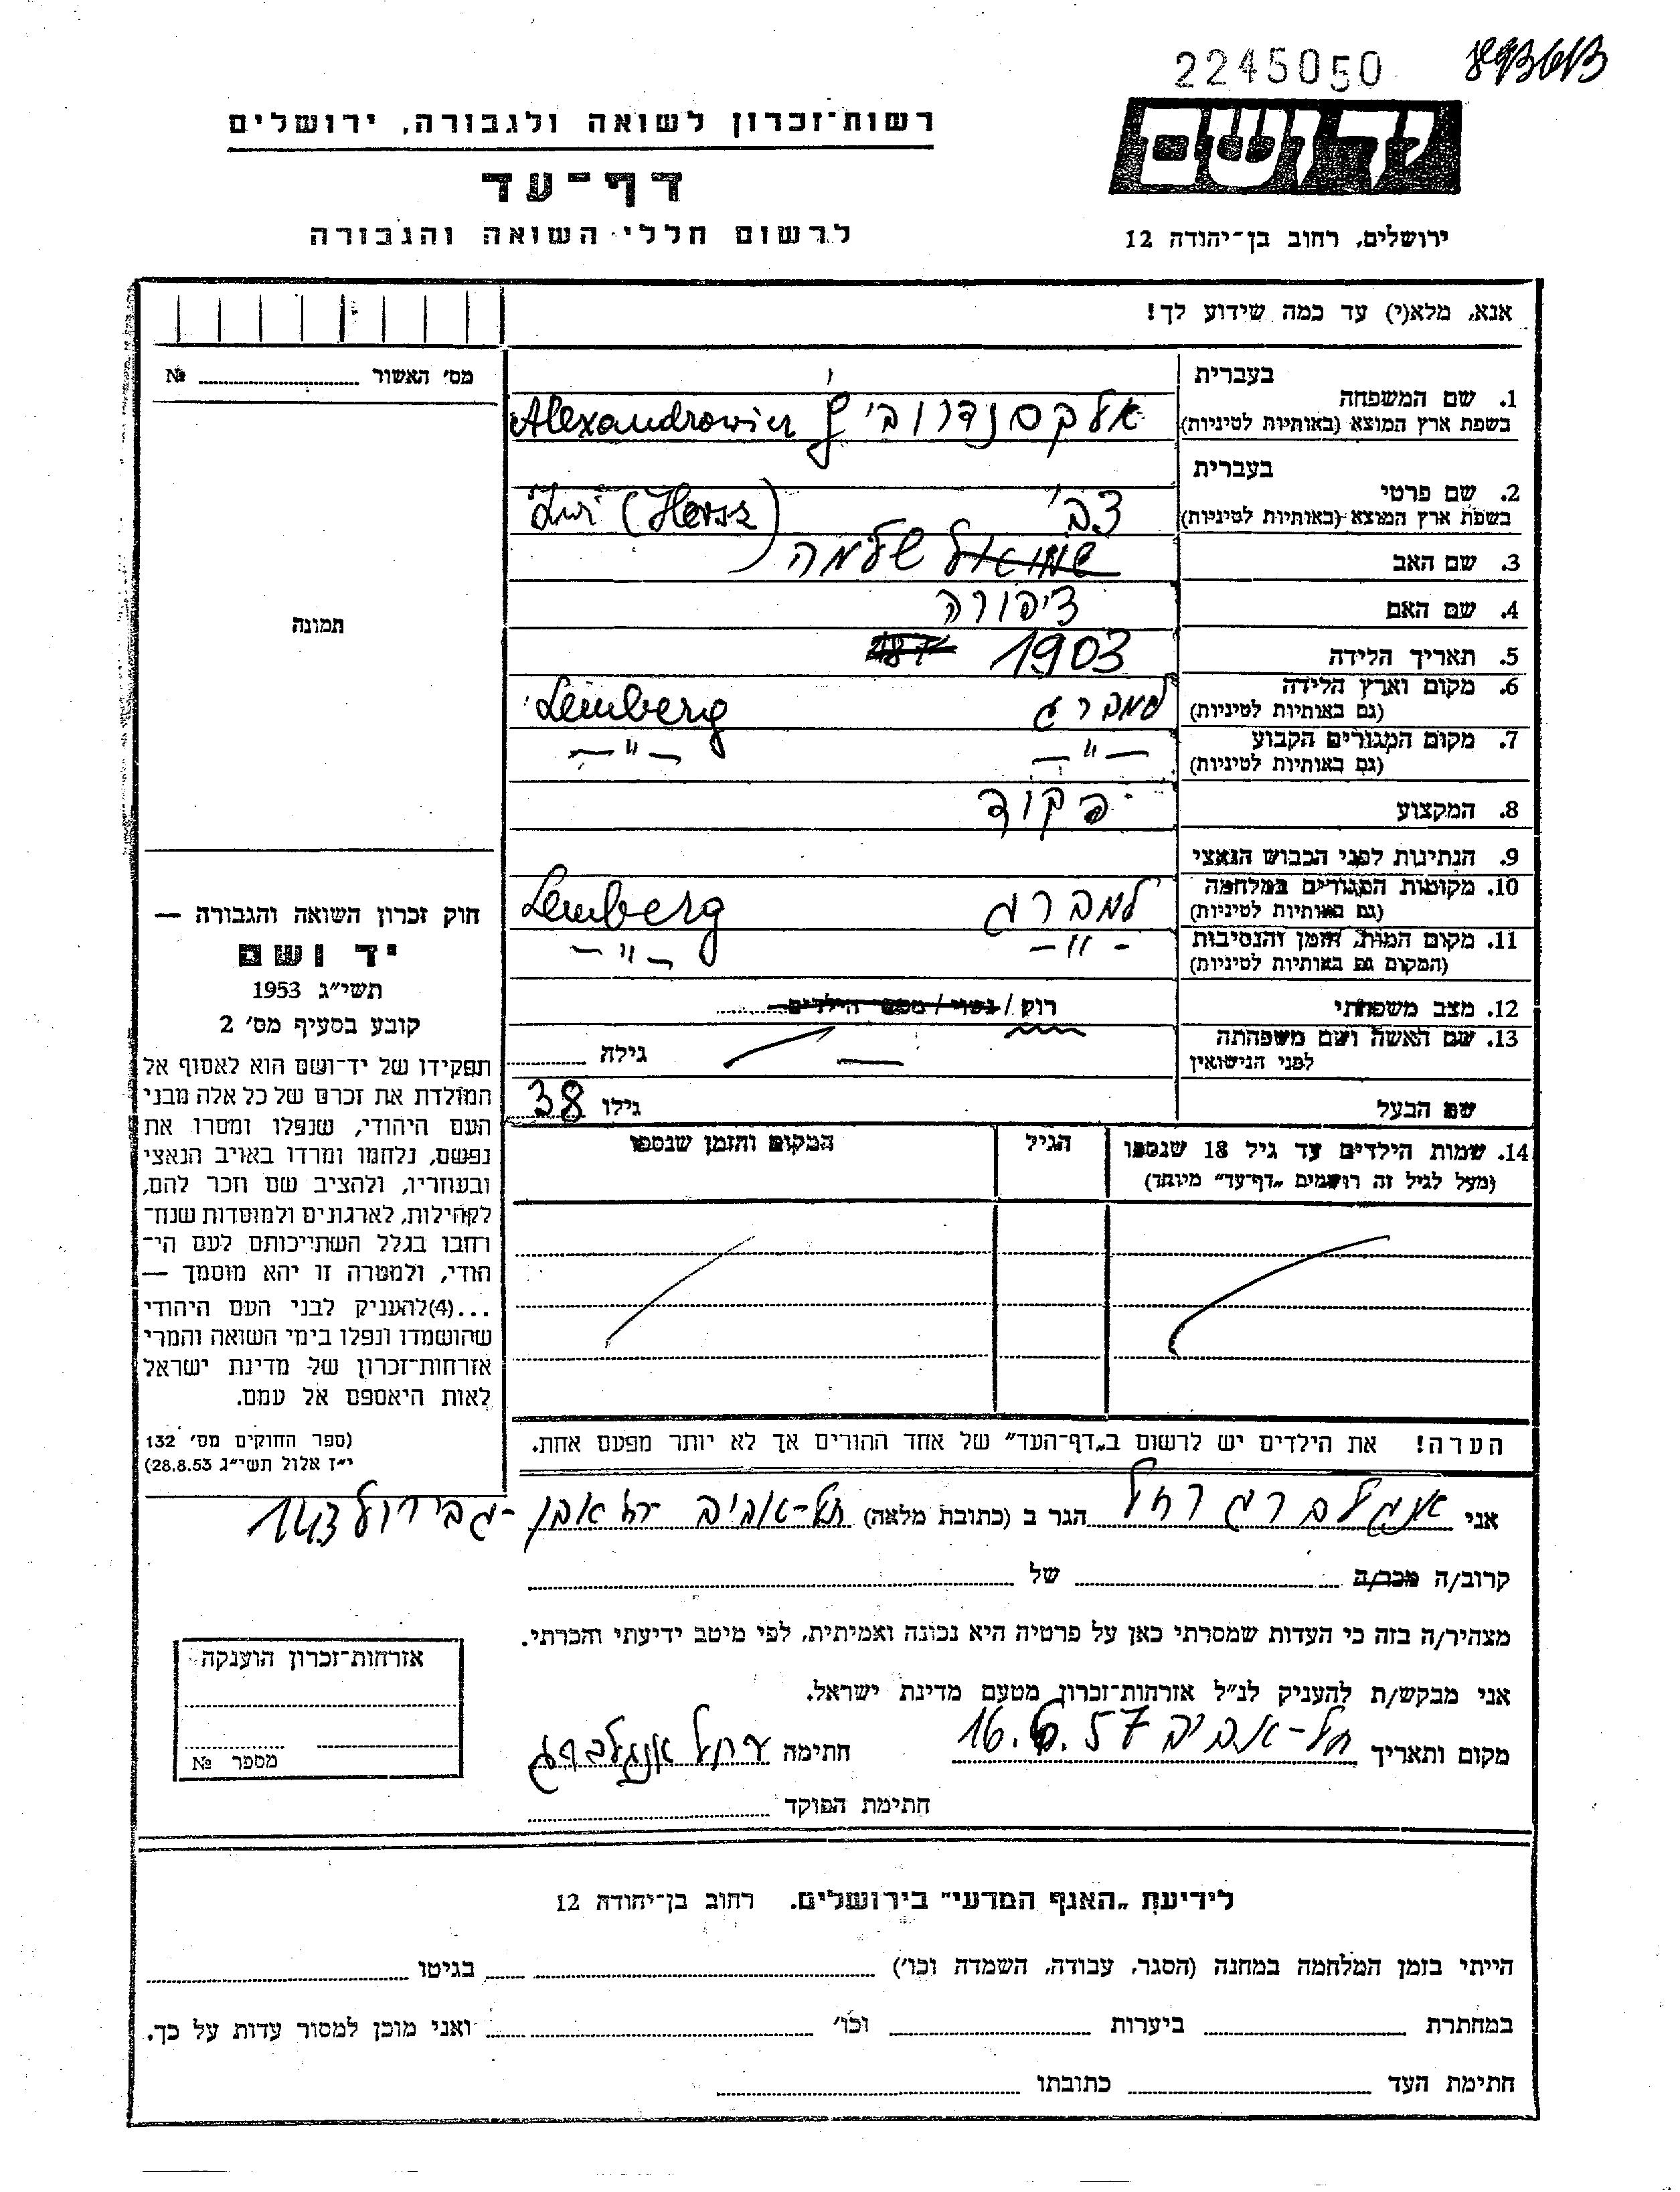 2245050
893613
רשות־זכרון לשואה ולגבורה, ירושלים
דף־עד
לרשום חללי השואה והגבורה
יד ושם
ירושלים, רחוב בן־יהודה 12
אנא, מלא(י) עד כמה שידוע לך!
מס׳ האשור № ........
תמונה
1. שם המשפחה
בעברית
בשפת ארץ המוצא (באותיות לטיניות)
אלכסנדרוביץ Alexandrowicz
2. שם פרטי
בעברית
בשפת ארץ המוצא (באותיות לטיניות)
צבי Zwi (Hersz)
3. שם האב שמואל שלמה
4. שם האם ציפורה
5. תאריך הלידה 1903
6. מקום וארץ הלידה
(גם באותיות לטיניות)
למברג Lemberg
7. מקום המגורים הקבוע
(גם באותיות לטיניות)
— " — — " —
8. המקצוע פקיד
9. הנתינות לפני הכבוש הנאצי
10. מקומות המגורים במלחמה
(גם באותיות לטיניות)
למברג Lemberg
11. מקום המות, הזמן והנסיבות
(המקום גם באותיות לטיניות)
— " — — " —
12. מצב משפחתי רוק / נשוי / מספר הילדים
13. שם האשה ושם משפחתה
לפני הנישואין
— גילה
שם הבעל גילו 38
14. שמות הילדים עד גיל 18 שנספו
(מעל לגיל זה רושמים „דף־עד" מיוחד)
הגיל
המקום והזמן שנספו
הערה! את הילדים יש לרשום ב„דף־העד" של אחד ההורים אך לא יותר מפעם אחת.
חוק זכרון השואה והגבורה —
יד ושם
תשי״ג 1953
קובע בסעיף מס׳ 2
תפקידו של יד־ושם הוא לאסוף אל
המולדת את זכרם של כל אלה מבני
העם היהודי, שנפלו ומסרו את
נפשם, נלחמו ומרדו באויב הנאצי
ובעוזריו, ולהציב שם וזכר להם,
לקהילות, לארגונים ולמוסדות שנח־
רהבו בגלל השתייכותם לעם הי־
הודי, ולמטרה זו יהא מוסמך —
...(4)להעניק לבני העם היהודי
שהושמדו ונפלו בימי השואה והמרי
אזרחות־זכרון של מדינת ישראל
לאות היאספם אל עמם.
(ספר החוקים מס׳ 132
י״ז אלול תשי״ג 28.8.53)
אני אנגלברג רחל הגר ב (כתובת מלאה) תל-אביב רח אבן-גבירול 143
קרוב/ה מכר/ה ........ של ........
מצהיר/ה בזה כי העדות שמסרתי כאן על פרטיה היא נכונה ואמיתית, לפי מיטב ידיעתי והכרתי.
אני מבקש/ת להעניק לנ״ל אזרחות־זכרון מטעם מדינת ישראל.
מקום ותאריך תל-אביב 16.6.57 חתימה רחל אנגלברג
חתימת הפוקד ........
אזרחות־זכרון הוענקה
מספר №
לידיעת „האגף המדעי" בירושלים. רחוב בן־יהודה 12
הייתי בזמן המלחמה במחנה (הסגר, עבודה, השמדה וכו׳) ........ בגיטו ........
במחתרת ........ ביערות ........ וכו׳ ........ ואני מוכן למסור עדות על כך.
חתימת העד ........ כתובתו ........